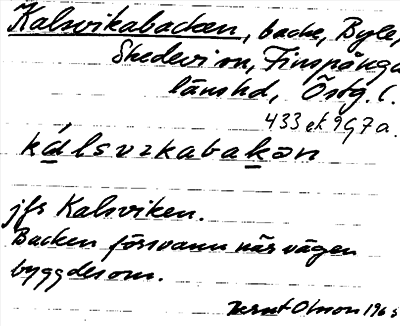 Kalsvikabacken, backe, Byle,
Skedevi sn, Finspånga
länshd, Östg. l.
433 ek 9G7a.
kálsvɪkabakən
jfs Kalsviken.
Backen försvann när vägen
byggdes om.
Bernt Olsson 1965